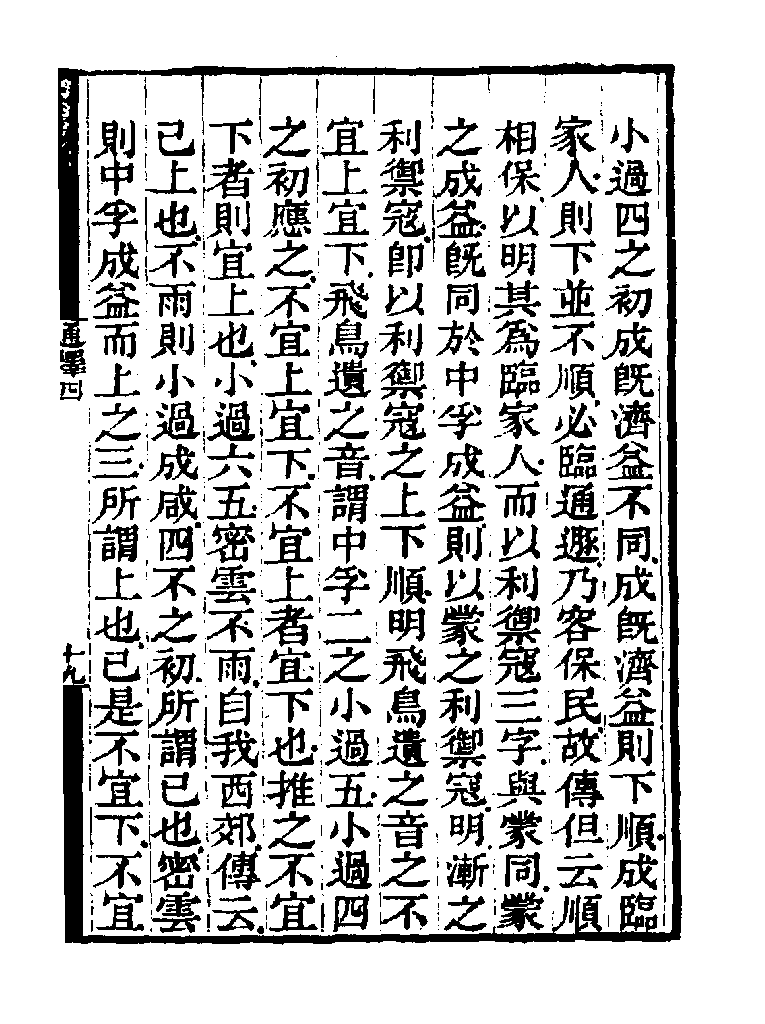 小過四之初成旣濟益不同成旣濟益則下順成臨
家人則下並不順必臨通遯乃容保民故傳但云順
相保以明其爲臨家人而以利禦寇三字與蒙同蒙
之成益旣同於中孚成益則以蒙之利禦寇明漸之
利禦寇卽以利禦寇之上下順明飛鳥遺之音之不
宜上宜下飛鳥遺之音謂中孚二之小過五小過四
之初應之不宜上宜下不宜上者宜下也推之不宜
下者則宜上也小過六五密雲不雨自我西郊傳云
已上也不雨則小過成咸四不之初所謂已也密雲
則中孚成益而上之三所謂上也已是不宜下不宜
通釋四
十九